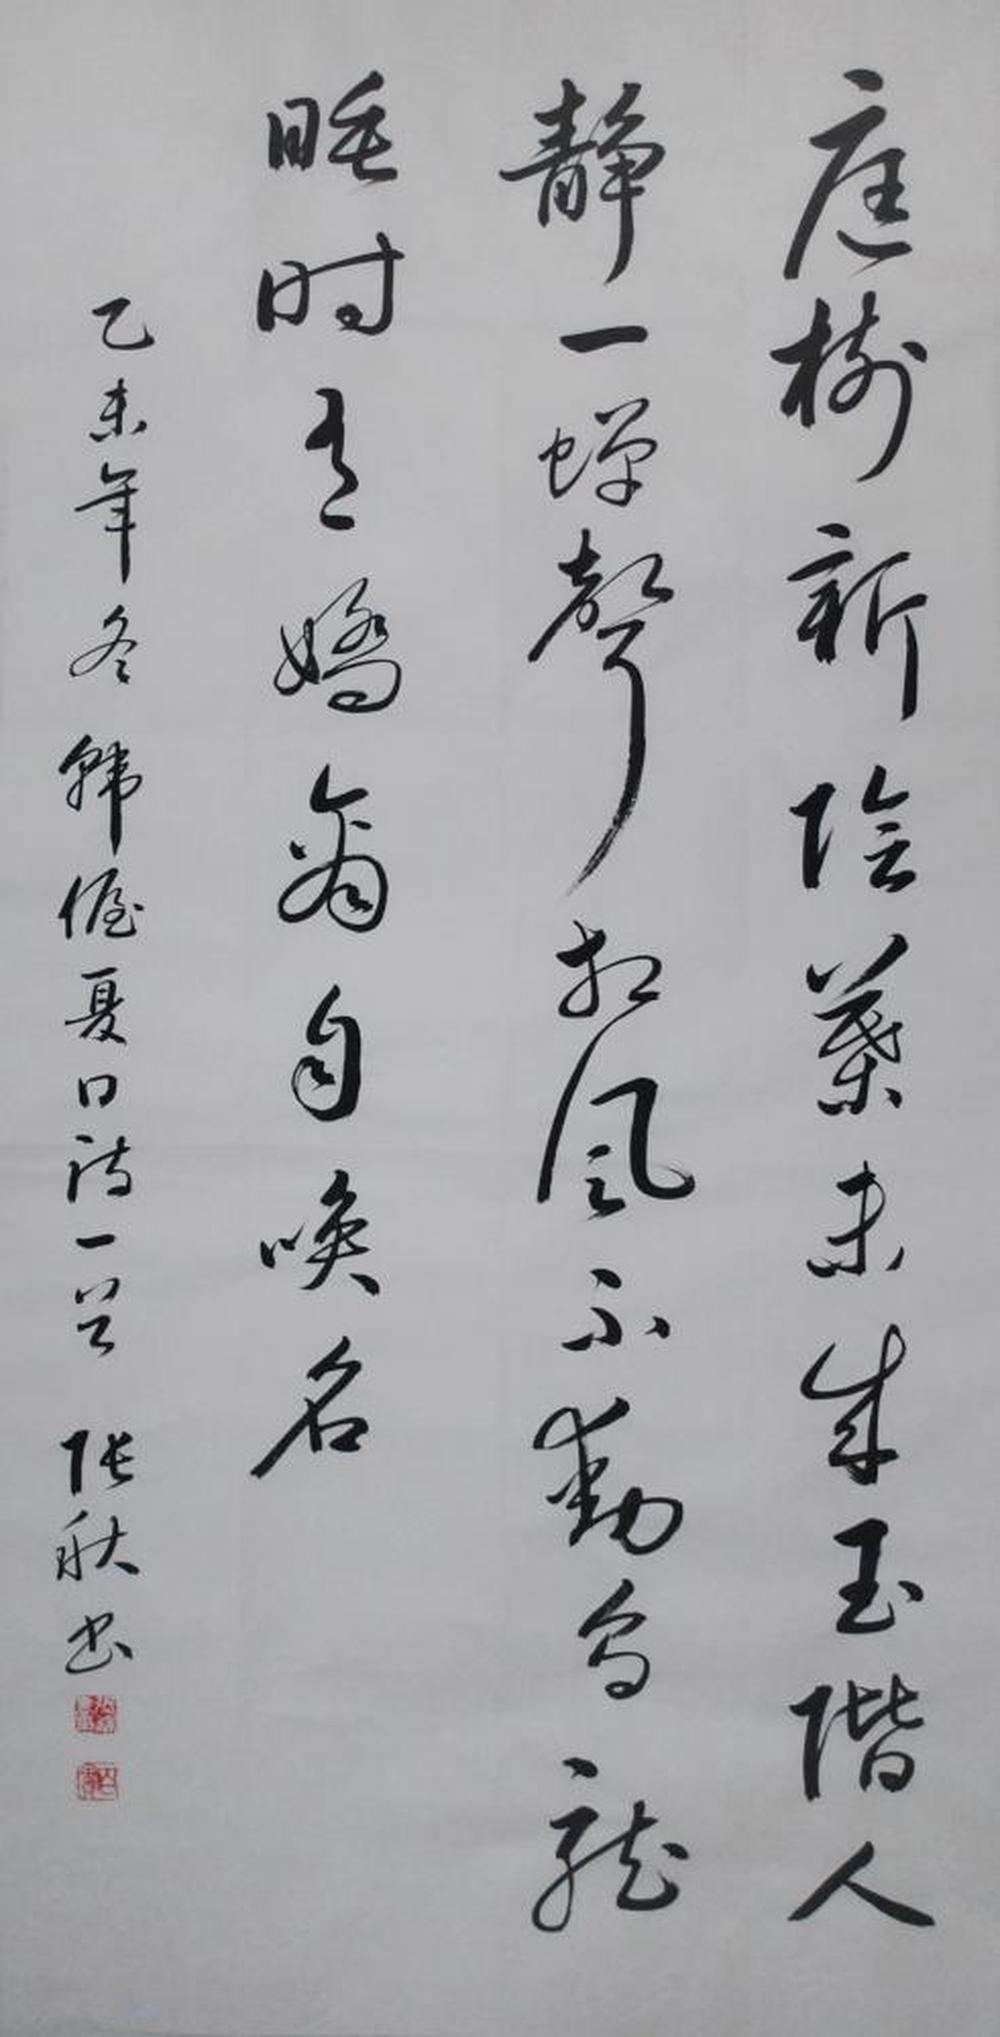 庭树新阴叶未成玉阶人
静一蝉声相风不動乌龙
睡时有娇莺自唤名
乙未年冬韩偓夏日诗一首 张秋书